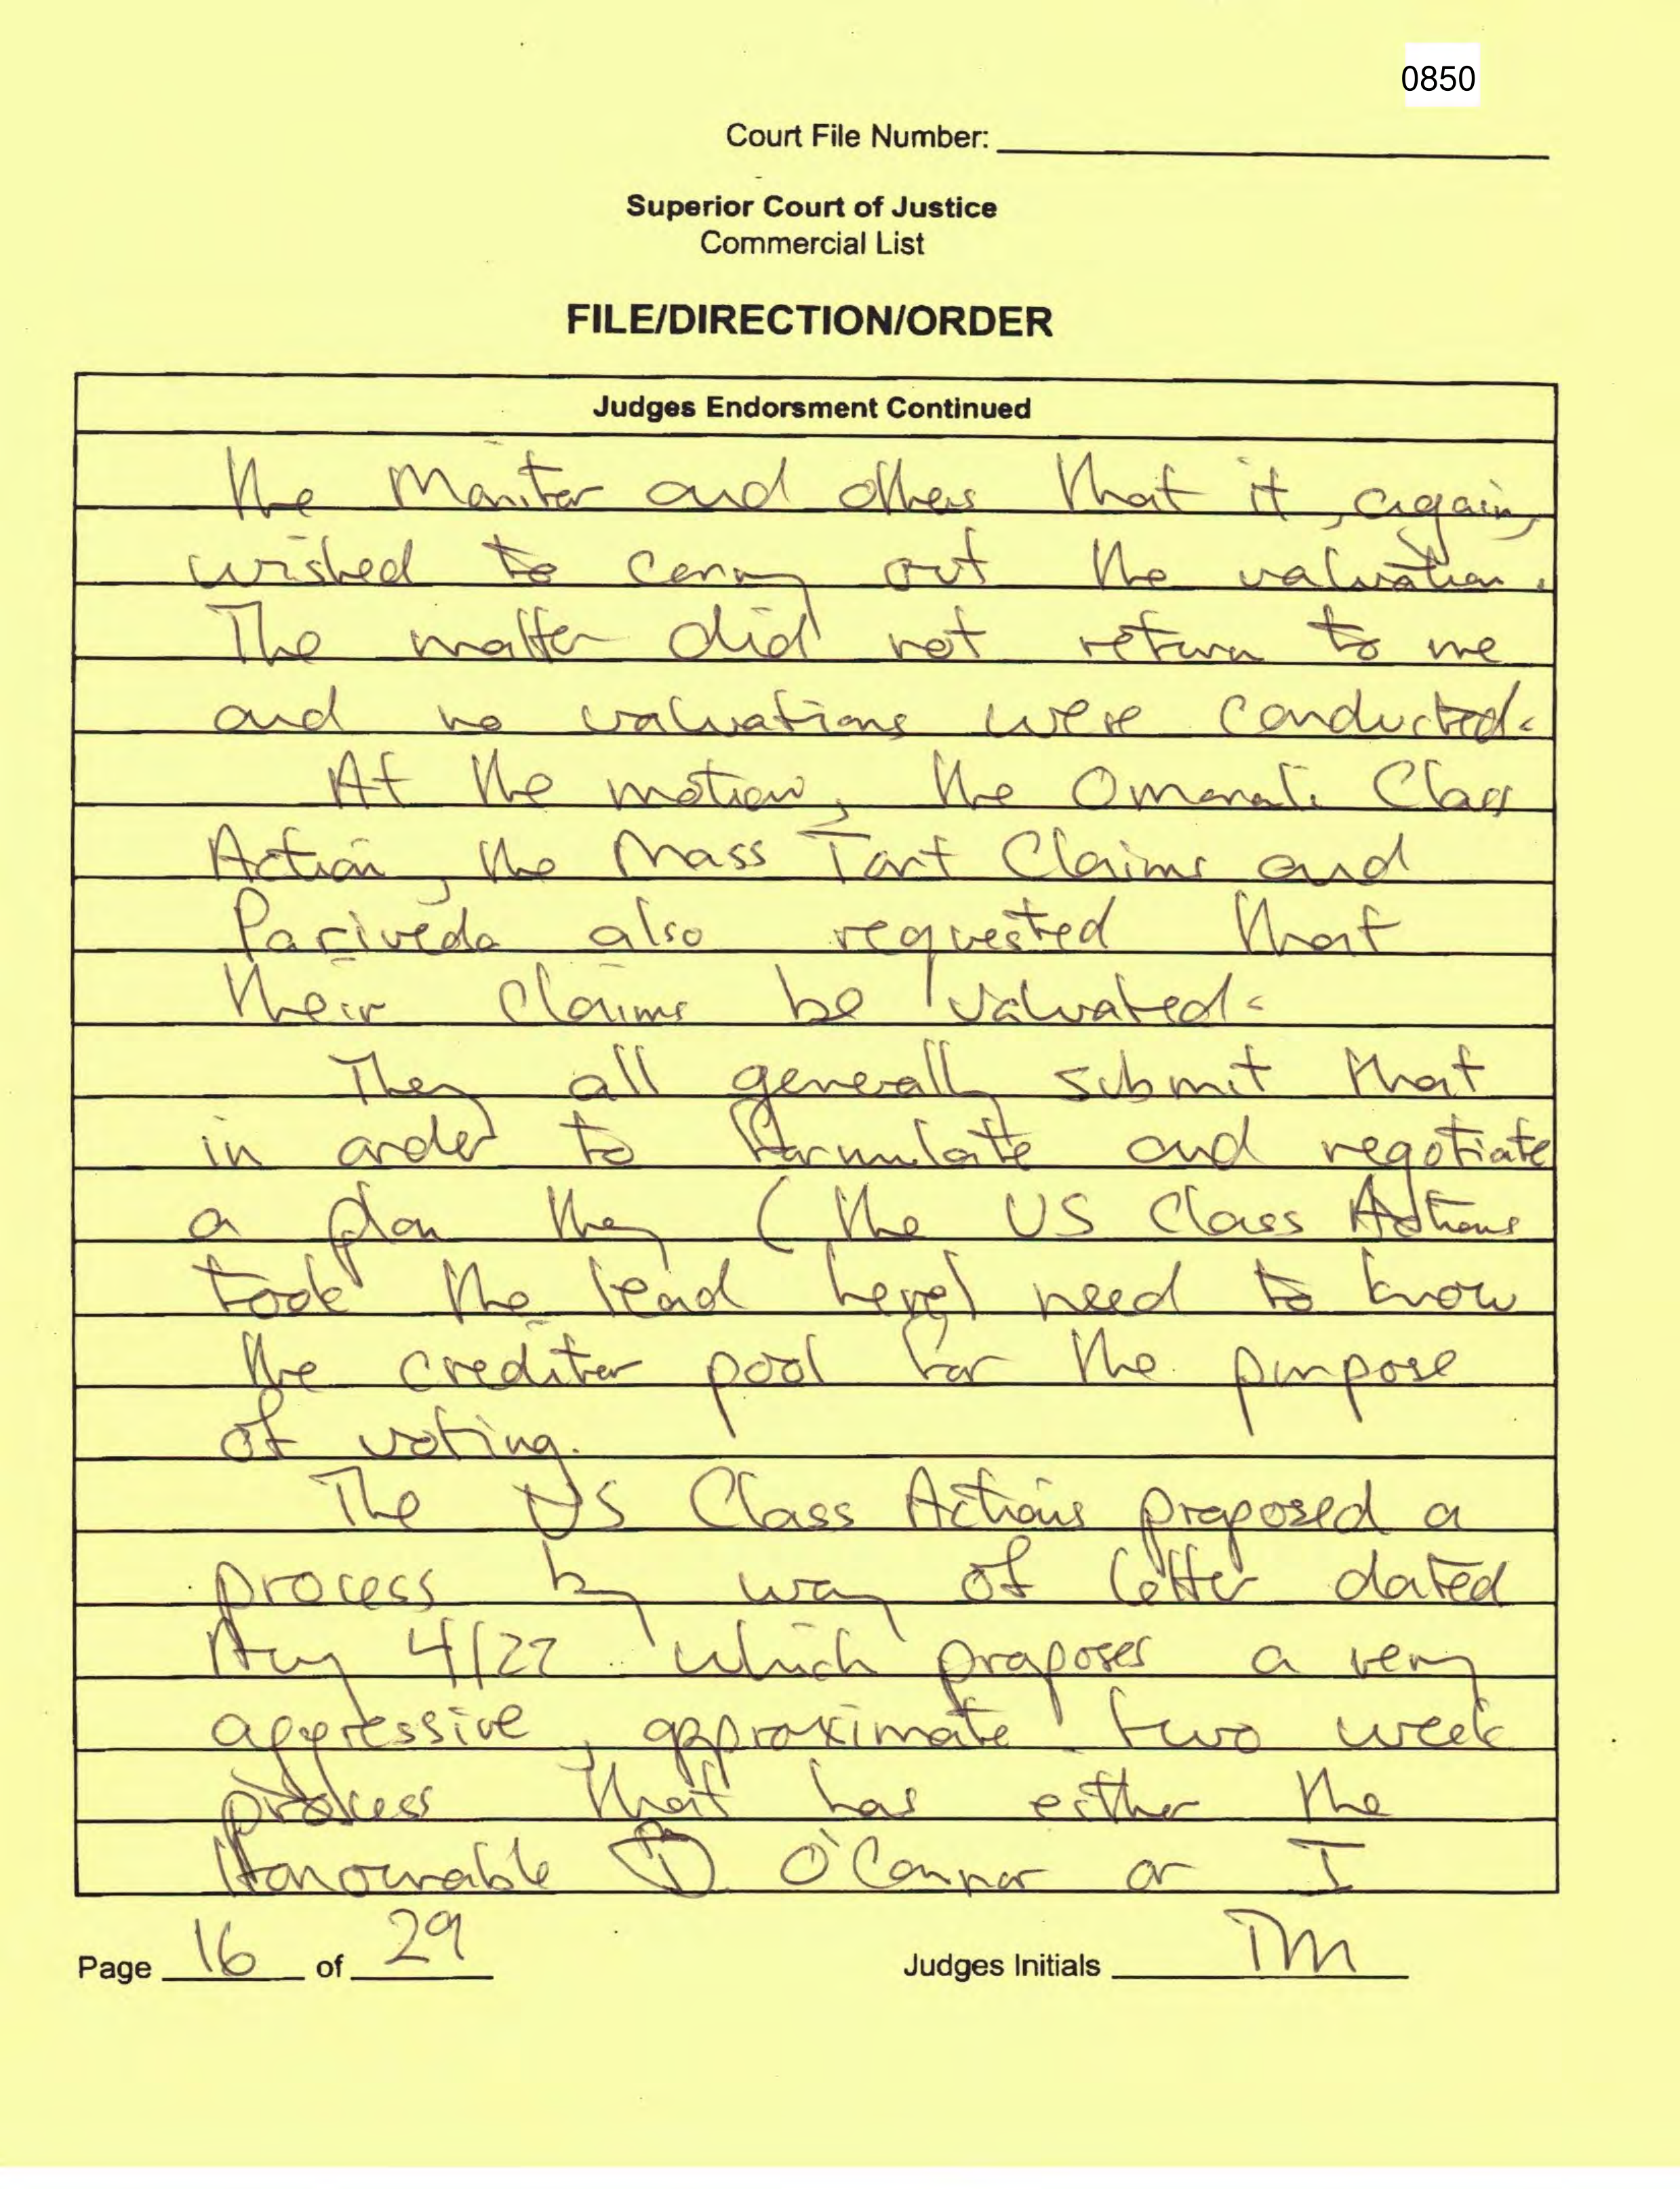 0850
Court File Number:
Superior Court of Justice
Commercial List
FILE/DIRECTION/ORDER
Judges Endorsment Continued
the Monitor and others that it, again,
wished to carry out the valuation.
The matter did not return to me
and no valuations were conducted.
At the motion, the Omarali Class
Action, the Mass Tort Claims and
Pariveda also requested that
their claims be valuated.
They all generally submit that
in order to formulate and negotiate
a plan they (the US Class Actions
took the lead here) need to know
the creditor pool for the purpose
of voting.
The US Class Actions proposed a
process by way of letter dated
Aug 4/22 which proposes a very
aggressive, approximate two week
process that has either the
Honourable D O'Connor or I
Page 16 of 29
Judges Initials TM